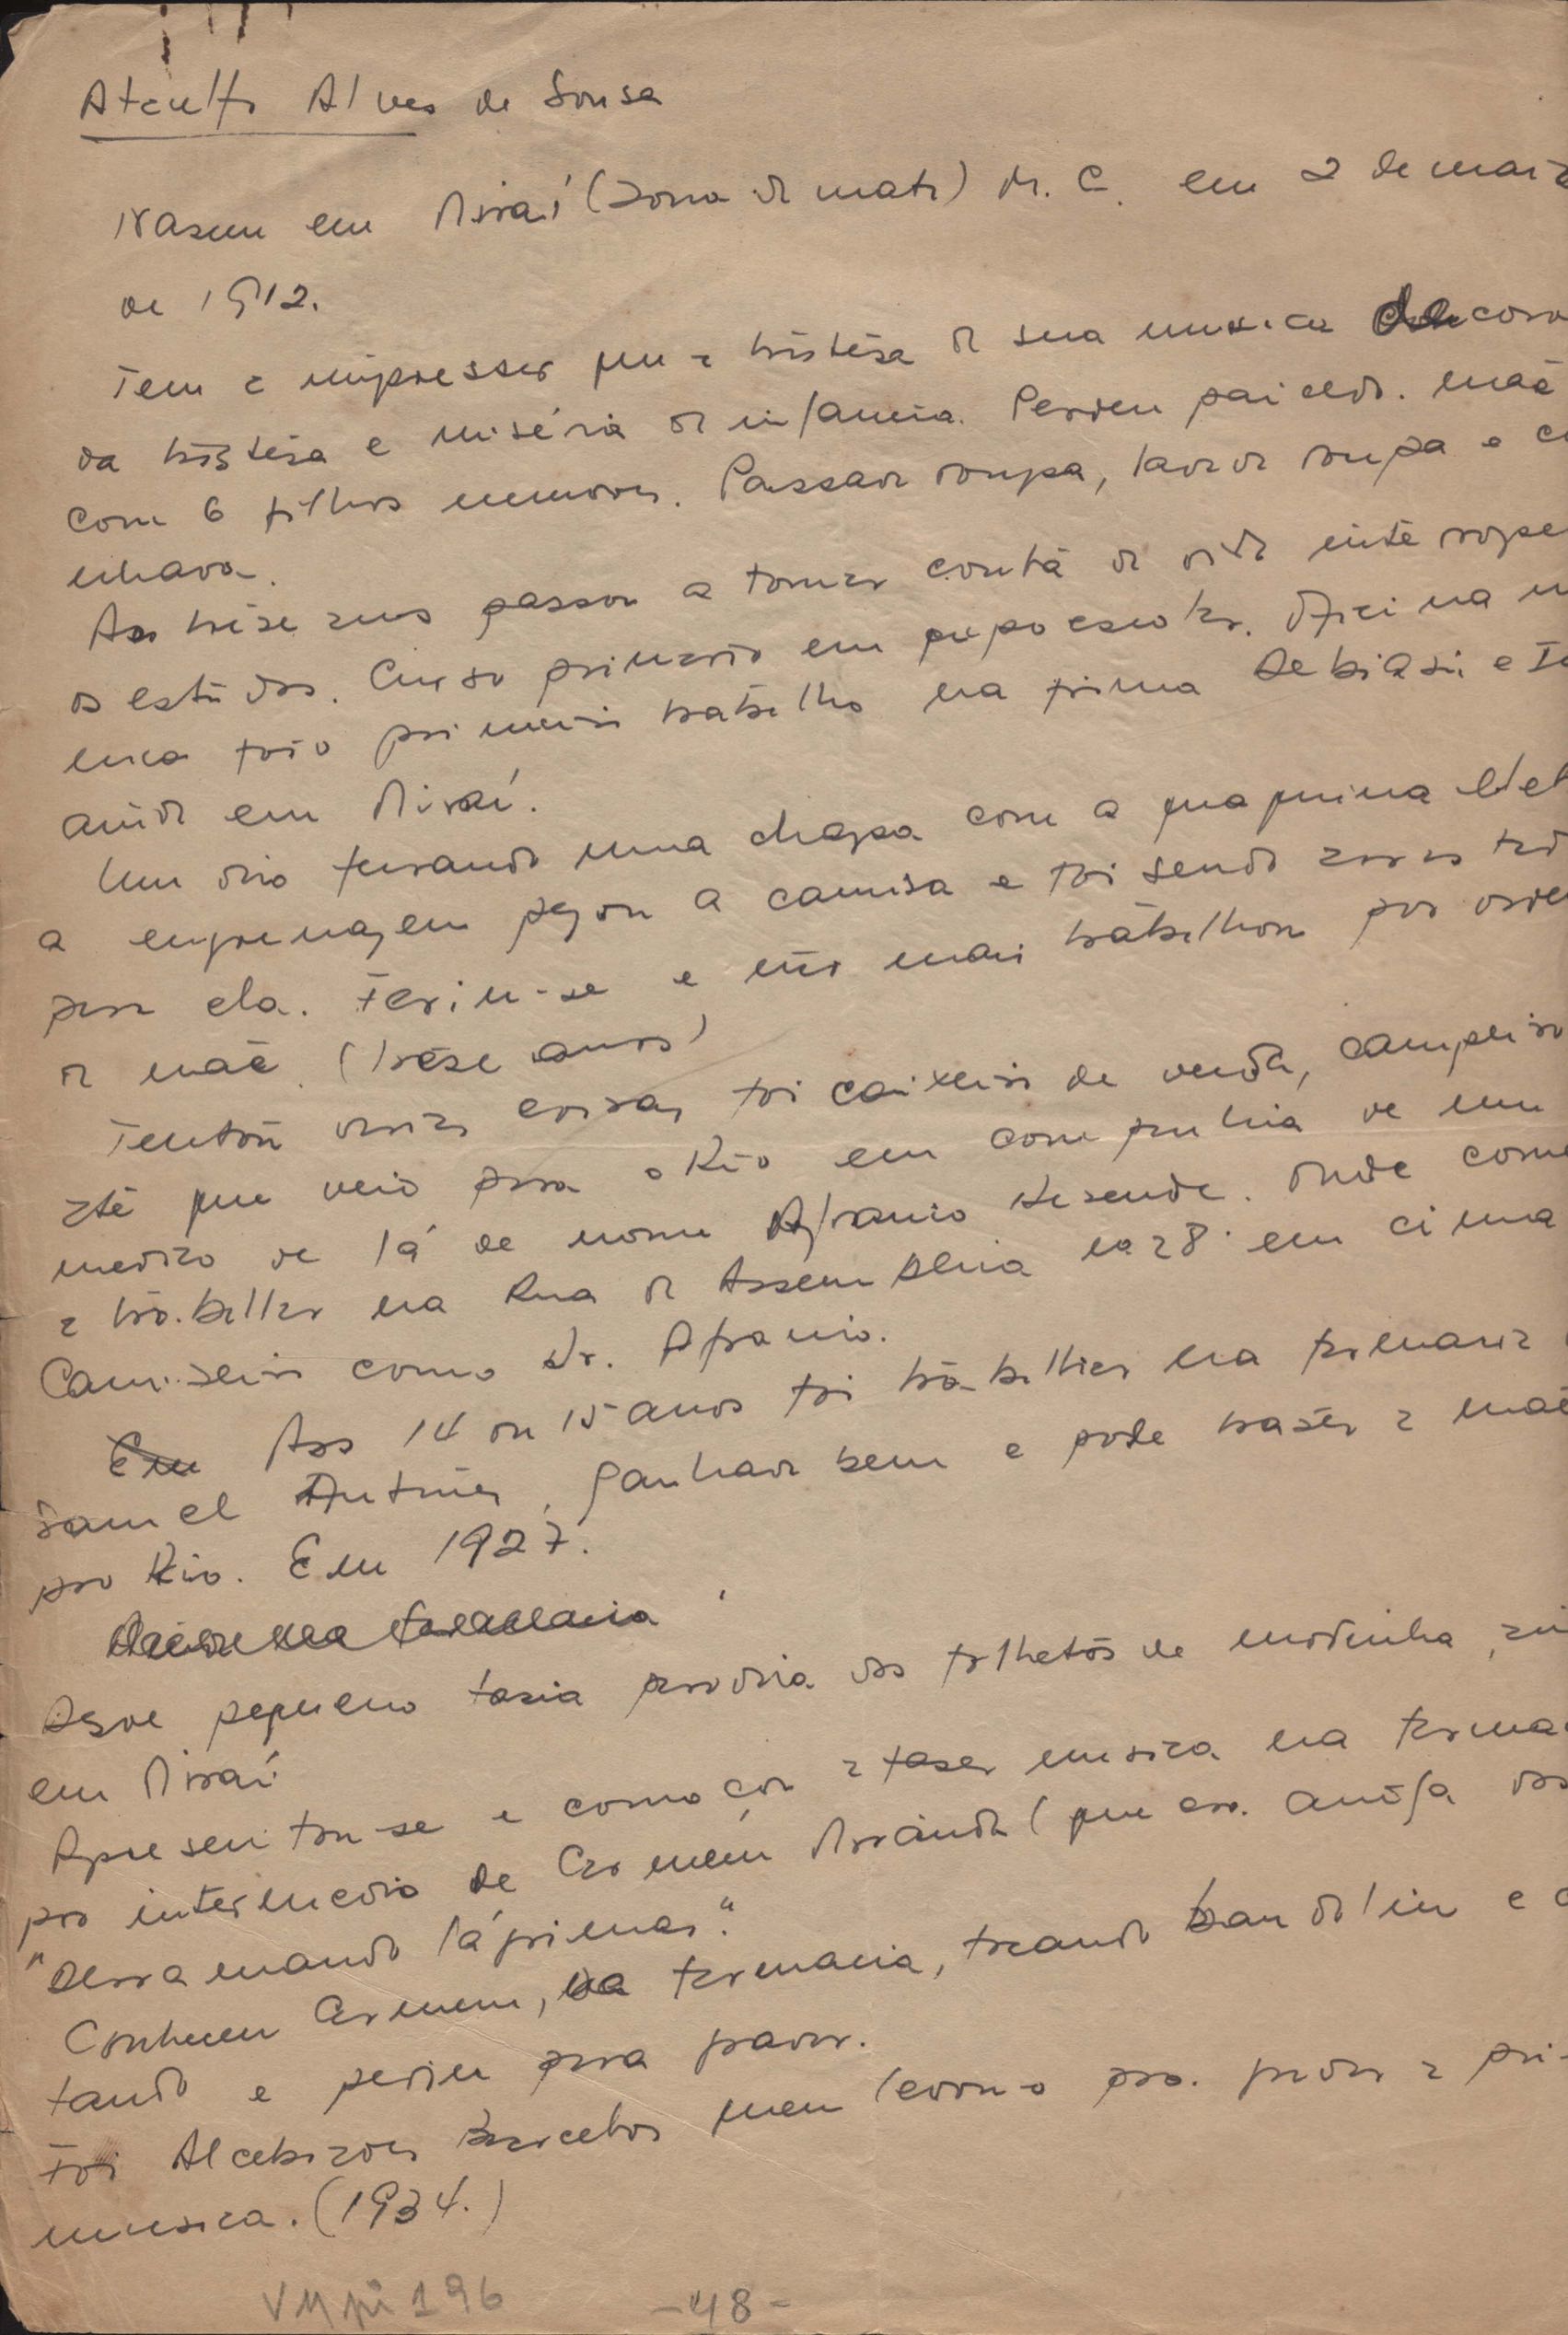 Ataulfo Alves de Sousa
Nasceu em Miraí (zona da mata) M. G. em 2 de maio
de 1912.
Tem a impressão que a tristêsa de sua musica decor
da tristêsa e miséria da infancia. Perdeu pai cedo. Mãe
com 6 filhos menores. Passava roupa, lavava roupa e co
nhava.
Aos trêse anos passou a tomar conta da vida interrope
os estudos. Curso primario em grupo escolar. Oficina m
nica foi o primeiro trabalho na firma Debiasi e
ainda em Miraí.
Um dia furando uma chapa com a maquina
a engrenagem pegou a camisa e foi sendo arrastad
por ela. Feriu-se e não mais trabalhou por orde
da mãe (trêse anos)
Tentou varias coisas, foi caixeiro de venda, campeiro
até que veio para o Rio em companhia de um
medico de lá de nome Afranio Resende. Onde come
a trabalhar na Rua da Assembleia no 28 em cima
Camiseiro com o Dr. Afranio.
Em Aos 14 ou 15 anos foi trabalhar na farmacia
Samuel Antunes, ganhava bem e pode traser a mãe
pro Rio. Em 1927.
Desde pequeno fasia parodia dos folhetos de modinha,
em Miraí
Apresentou-se e começou a faser musica na farma
por intermedio de Carmem Miranda (que era amiga dos
"Derramando lágrimas".
Conheceu Carmem, na farmacia, tocando bandolim e
tando e pediu para gravar.
Foi Alcebiades Barcelos quem levou-o para gravar a pri-
musica. (1934.)
196
-48-